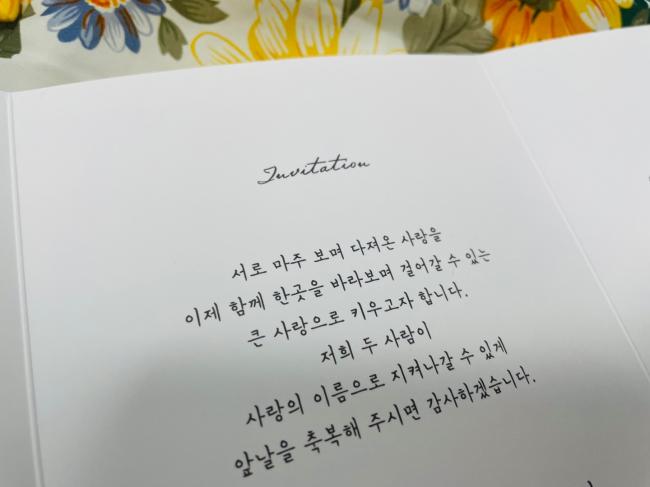 Invitation
서로 마주 보며 다져온 사랑을
이제 함께 한곳을 바라보며 걸어갈 수 있는
큰 사랑으로 키우고자 합니다.
저희 두 사람이
사랑의 이름으로 지켜나갈 수 있게
앞날을 축복해 주시면 감사하겠습니다.